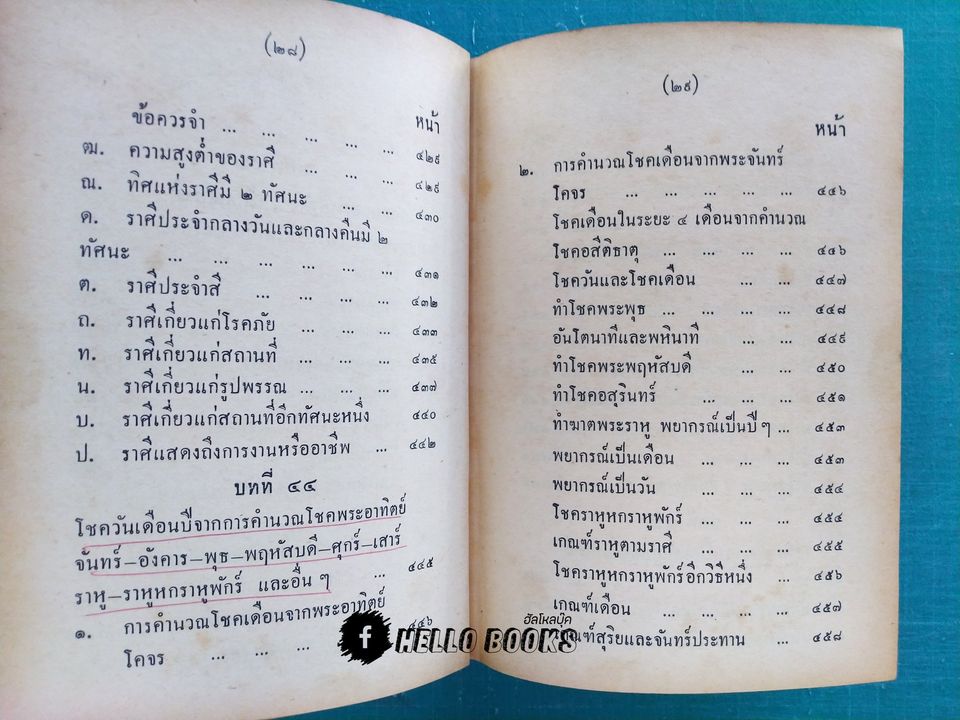 (๒๘)
หน้า
ข้อควรจำ ... ... ... ... ... ๔๒๙
ฒ. ความสูงต่ำของราศี ... ... ... ๔๒๙
ณ. ทิศแห่งราศีมี ๒ ทัศนะ ... ... ๔๓๐
ด. ราศีประจำกลางวันและกลางคืนมี ๒
ทัศนะ ... ... ... ... ... ... ๔๓๑
ต. ราศีประจำสี ... ... ... ... ๔๓๒
ถ. ราศีเกี่ยวแก่โรคภัย ... ... ... ๔๓๓
ท. ราศีเกี่ยวแก่สถานที่ ... ... ... ๔๓๕
น. ราศีเกี่ยวแก่รูปพรรณ ... ... ... ๔๓๗
บ. ราศีเกี่ยวแก่สถานที่อีกทัศนะหนึ่ง ๔๔๐
ป. ราศีแสดงถึงการงานหรืออาชีพ ... ๔๔๒
บทที่ ๔๔
โชควันเดือนปีจากการคำนวณโชคพระอาทิตย์
จันทร์–อังคาร–พุธ–พฤหัสบดี–ศุกร์–เสาร์
ราหู–ราหูหกราหูพักร์ และอื่น ๆ ... ๔๔๕
๑. การคำนวณโชคเดือนจากพระอาทิตย์
โคจร ... ... ... ๔๔๖
(๒๙)
หน้า
๒. การคำนวณโชคเดือนจากพระจันทร์
โคจร ... ... ... ... ... ๔๔๖
โชคเดือนในระยะ ๔ เดือนจากคำนวณ
โชคอสีติธาตุ ... ... ... ... ๔๔๖
โชควันและโชคเดือน ... ... ๔๔๗
ทำโชคพระพุธ ... ... ... ... ๔๔๘
อันโตนาทีและพหินาที ... ... ๔๔๙
ทำโชคพระพฤหัสบดี ... ... ๔๕๐
ทำโชคอสุรินทร์ ... ... ... ๔๕๑
ทำฆาตพระราหู พยากรณ์เป็นปี ๆ ... ๔๕๓
พยากรณ์เป็นเดือน ... ... ... ๔๕๓
พยากรณ์เป็นวัน ... ... ... ๔๕๔
โชคราหูหกราหูพักร์ ... ... ... ๔๕๔
เกณฑ์ราหูตามราศี ... ... ... ๔๕๕
โชคราหูหกราหูพักร์อีกวิธีหนึ่ง ... ๔๕๖
เกณฑ์เดือน ... ... ... ... ๔๕๗
เกณฑ์สุริยและจันทร์ประทาน ... ๔๕๘
ฮัลโหลบุ๊ค
f HELLO BOOKS